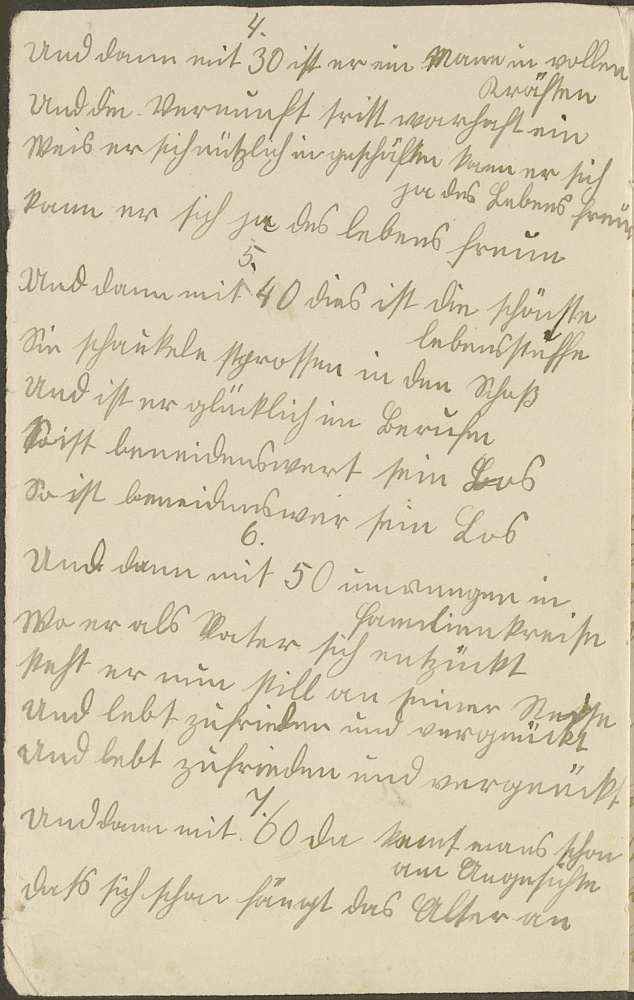 4.
Und dann mit 30 ist er ein Mann in vollen
Kräften
Und die Vernunft tritt warhaft ein
Weis er sich nützlich in geschäften kann er sich
ja des Lebens freun
kann er sich ja des lebens freun
5.
Und dann mit 40 dies ist die schönste
lebensstuffe
Sie schaukeln sprossen in den Schoß
Und ist er glücklich im Berufe
So ist beneidenswert sein Los
So ist beneidenswer sein Los
6.
Und dann mit 50 umrungen in
familienkreise
Wo er als Vater sich entzückt
steht er nun still an seiner Reise
Und lebt zufrieden und vergnückt
und lebt zufrieden und vergnückt
7.
Und dann mit 60 da kennt mans schon
am Angesichte
dass sich schon fängt das Alter an